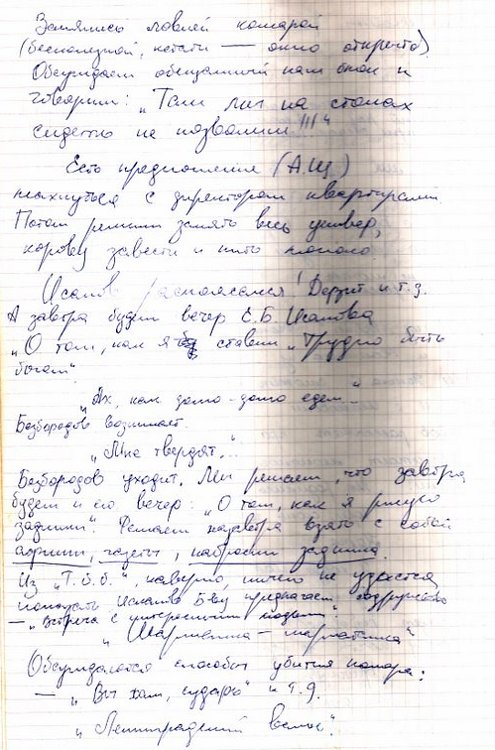 Занялись ловлей комаров
(бесполезной, кстати — окно открыто)
Обсуждаем обещанный нам банк и
говорим: „Там мы на столах
сидеть не позволим!!!"
Есть предложение (А.Щ.)
махнуться с директором квартирами
Потом решили занять весь универ,
корову завести и пить молоко.
Исаков распоясался! Дерзит и т.д.
А завтра будет вечер С.Б. Исакова
„О том, как я ставил „Трудно быть
богом"
„Ах, как долго-долго едем..."
Безбородов возникает.
„Мне твердят..."
Безбородов уходит. Мы решаем, что завтра
будет и его вечер: „О том, как я рисую
задники". Решаем назавтра взять с собой
афиши, газеты, наброски задника.
Из „Т.б.б.", наверно, ничего не удастся
показать. Исаков предлагает
— „Встреча с интересными людьми".
„Шарманка-шарлатанка"
Обсуждаются способы убития комара:
— „Вы хам, сударь" и т.д.
„Ленинградский вальс".